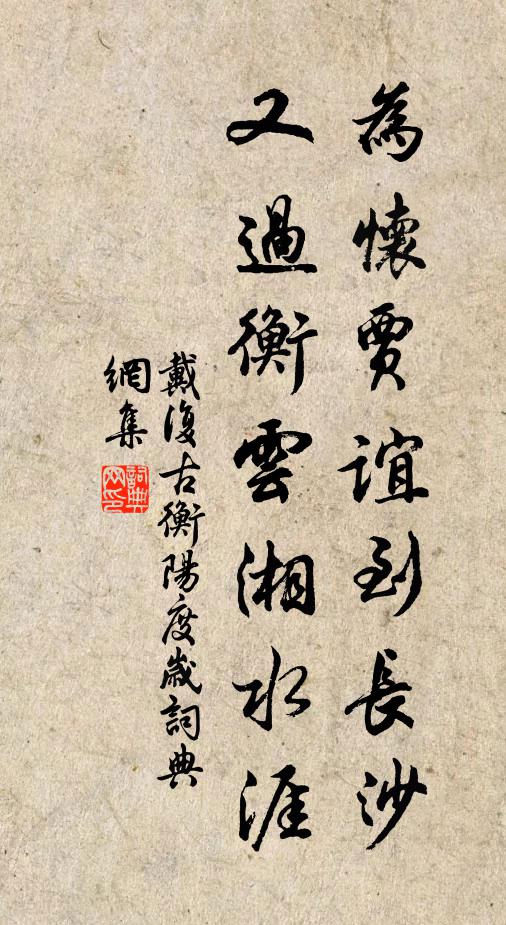 為懷賈誼到長沙
又過衡雲湘水涯
戴復古衡陽度歲詞典
網集
詞典網印